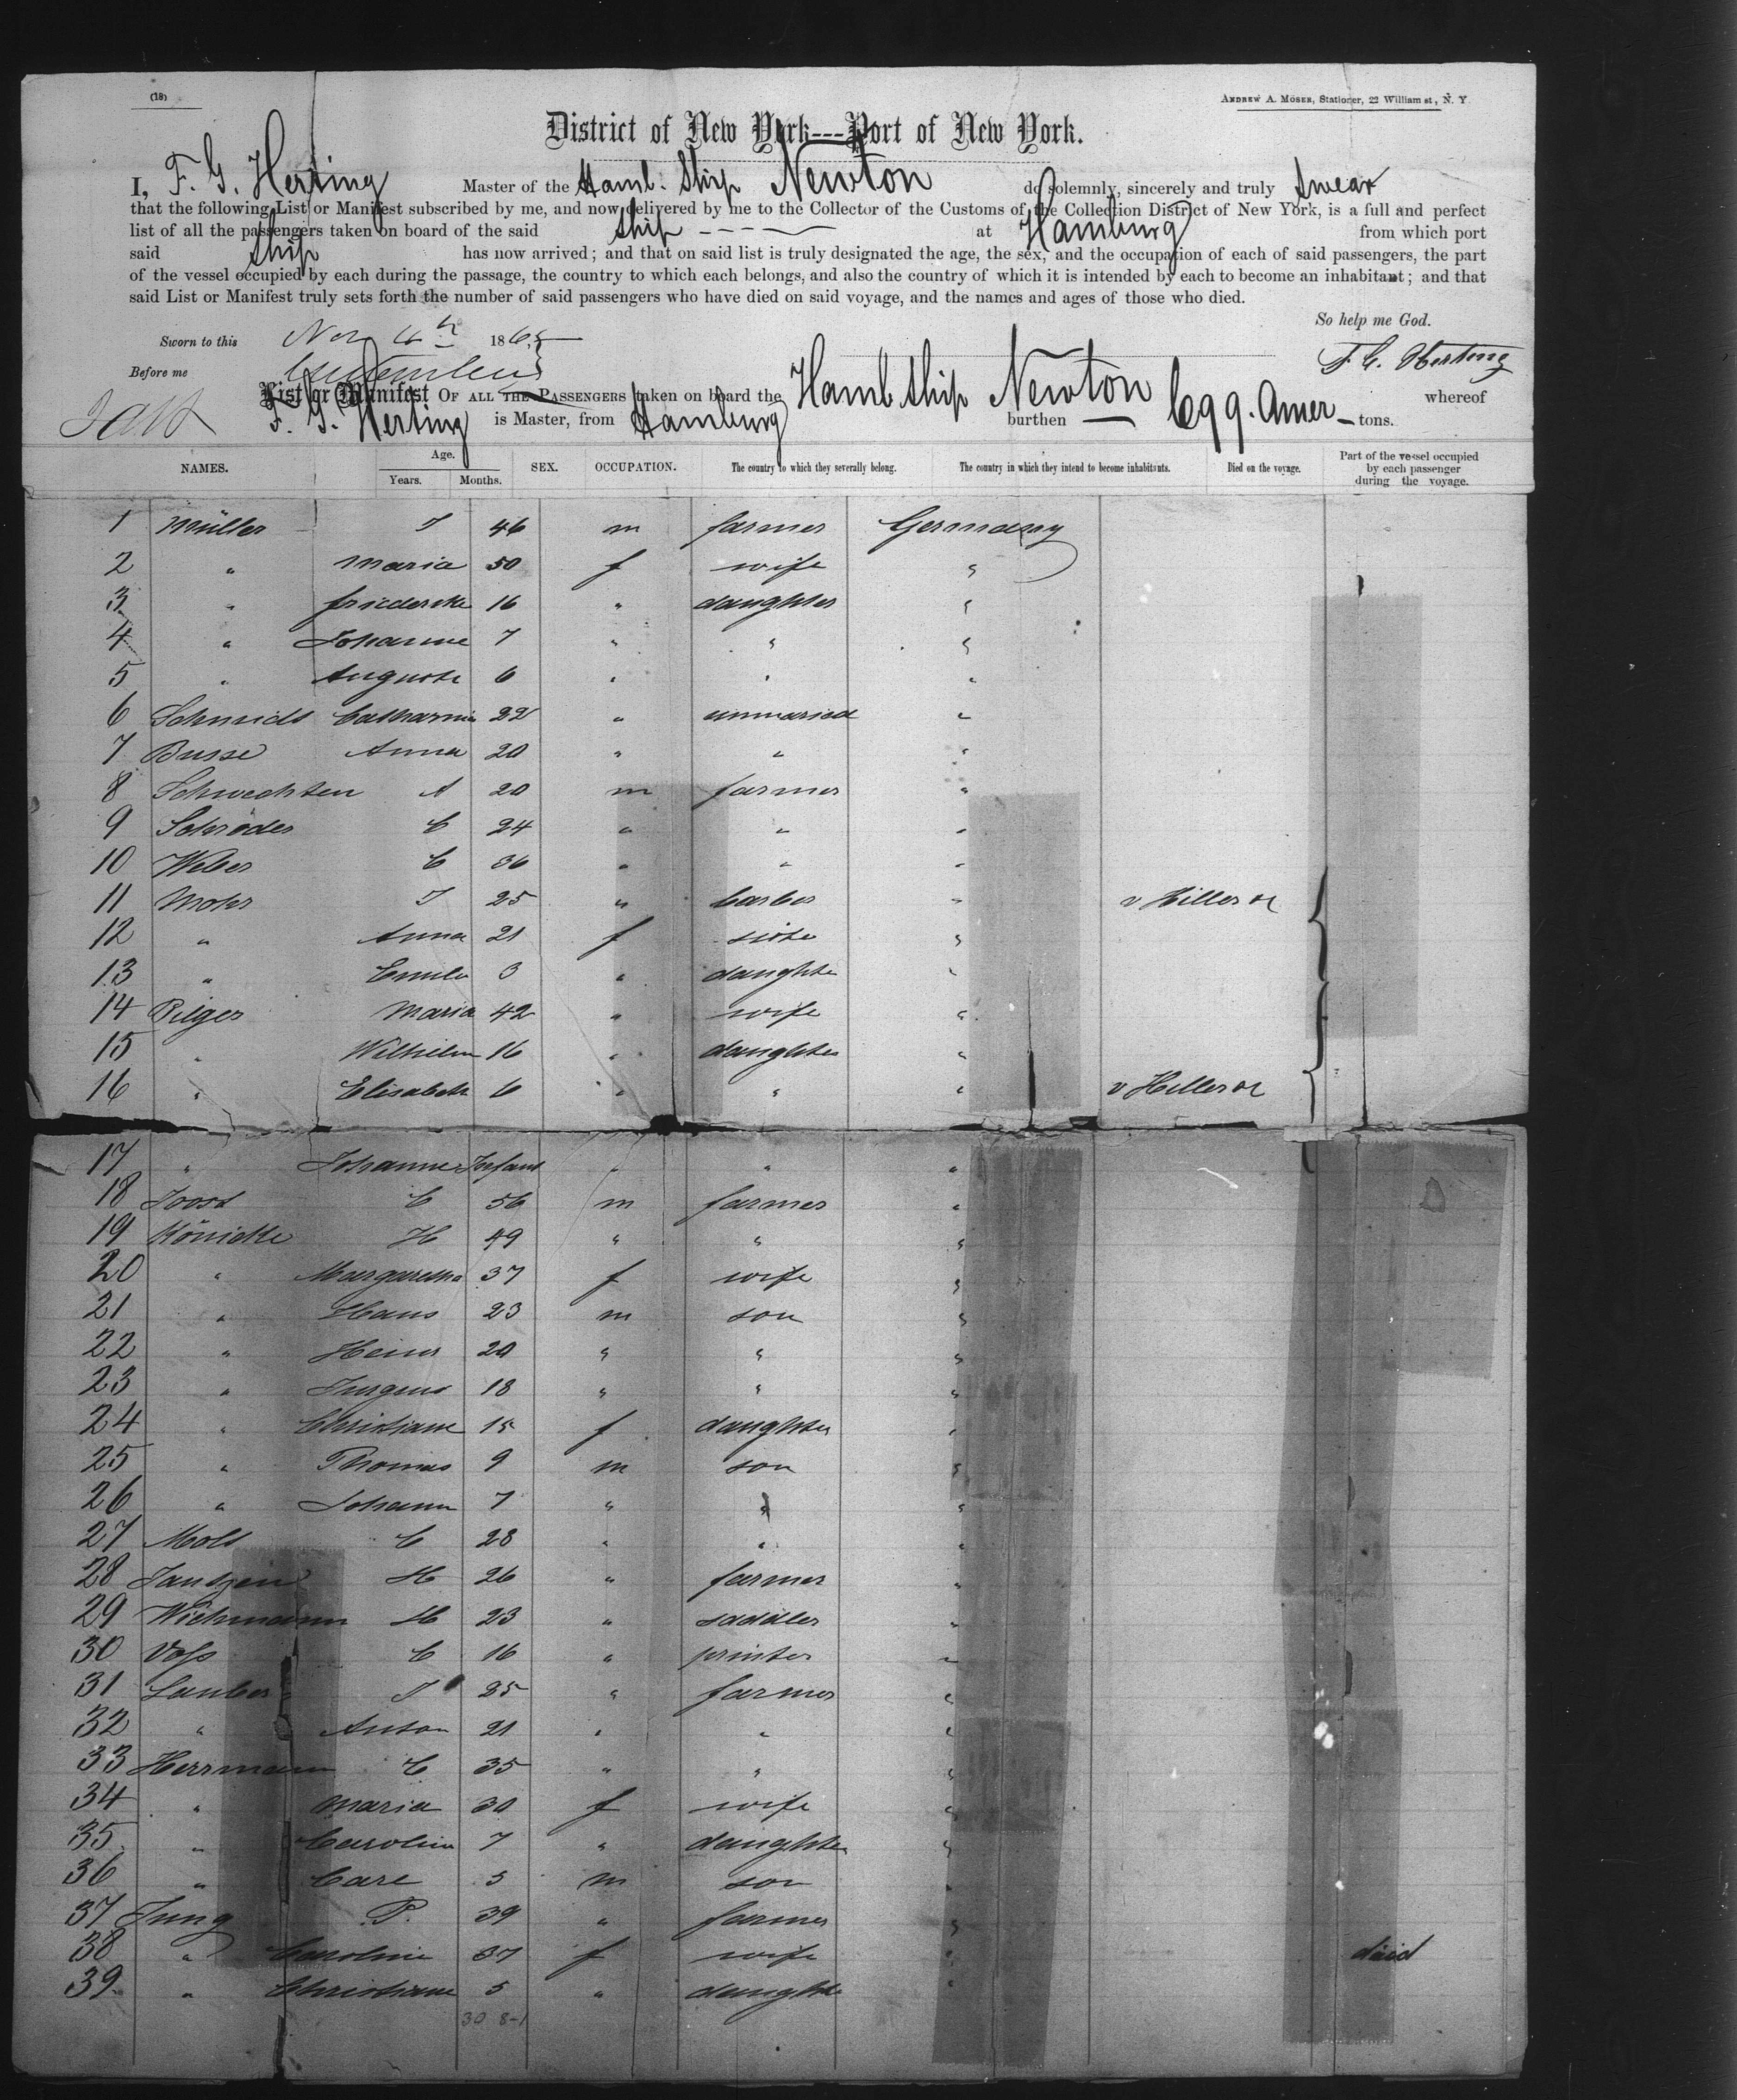 (18)
ANDREW A. MOSER, Stationer, 22 William st, N. Y.
District of New York---Port of New York.
I, F. G. Herting Master of the Hamb. Ship Newton do solemnly, sincerely and truly swear
that the following List or Manifest subscribed by me, and now delivered by me to the Collector of the Customs of the Collection District of New York, is a full and perfect
list of all the passengers taken on board of the said ship at Hamburg from which port
said ship has now arrived; and that on said list is truly designated the age, the sex, and the occupation of each of said passengers, the part
of the vessel occupied by each during the passage, the country to which each belongs, and also the country of which it is intended by each to become an inhabitant; and that
said List or Manifest truly sets forth the number of said passengers who have died on said voyage, and the names and ages of those who died.
So help me God.
Sworn to this Nov 1865
F. G. Herting
Before me
List or Manifest OF ALL THE PASSENGERS taken on board the Hamb ship Newton whereof
F. G. Herting is Master, from Hamburg burthen 699. Amer tons.
NAMES. Age. Years. Months. SEX. OCCUPATION. The country to which they severally belong. The country in which they intend to become inhabitants. Died on the voyage. Part of the vessel occupied by each passenger during the voyage.
1 Müller J 46 m farmer Germany
2 " Maria 50 f wife "
3 " friedericke 16 " daughter "
4 " Johanne 7 " " "
5 " Auguste 6 " " "
6 Schmidt Catharina 22 " unmaried "
7 Busse Anna 20 " " "
8 Schwechten A 20 m farmer "
9 Schröder C 24 " " "
10 Weber C 36 " " "
11 Mohr J 25 " barber "
12 " Anna 21 f "
13 " Emilie 3 " daughte "
14 Pilger Maria 42 " wife "
15 " Wilhelm 16 " daughter "
16 " Elisabeth 6 " " "
17 " Johanne Infant " " "
18 Joost C 56 m farmer "
19 Könicke H 49 " " "
20 " Margaretha 37 f wife "
21 " Hans 23 m son "
22 " Heinr 20 " " "
23 " Jurgens 18 " " "
24 " Christiane 15 f daughter "
25 " Thomas 9 m son "
26 " Johann 7 " " "
27 C 28 " " "
28 Jantzen H 26 " farmer "
29 Wichmann H 23 " saddler "
30 Voss C 16 " printer "
31 J 25 " farmer "
32 " Anton 21 " " "
33 Herrmann C 35 " " "
34 " Maria 30 f wife "
35 " Carolin 7 " daughter "
36 " Carl 5 m son "
37 Jung P. 39 " farmer "
38 " Caroline 37 f wife " died
39 " Christiane 5 " daughte "
30 8-1